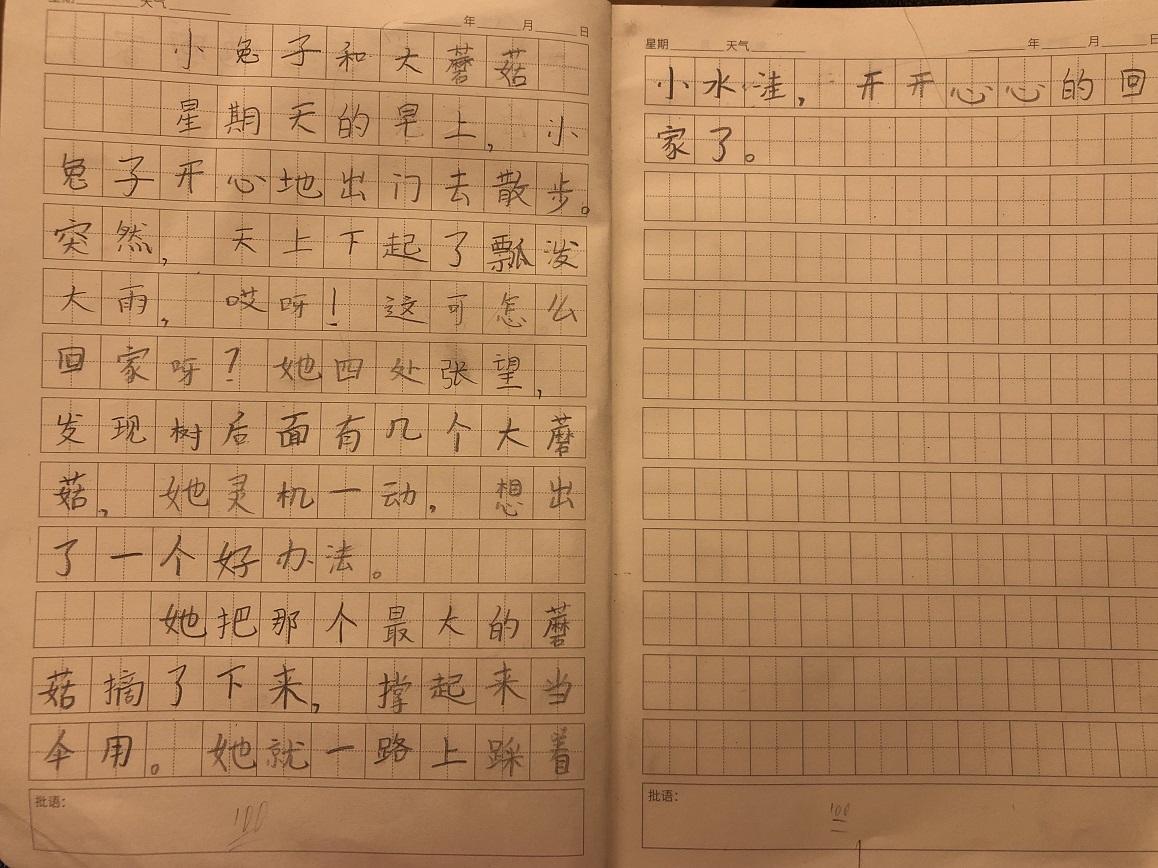 星期 天气 年 月 日
小兔子和大蘑菇
星期天的早上，小
兔子开心地出门去散步。
突然，天上下起了瓢泼
大雨，哎呀！这可怎么
回家呀？她四处张望，
发现树后面有几个大蘑
菇，她灵机一动，想出
了一个好办法。
她把那个最大的蘑
菇摘了下来，撑起来当
伞用。她就一路上踩着
批语：
100
星期 天气 年 月 日
小水洼，开开心心的回
家了。
批语：
100